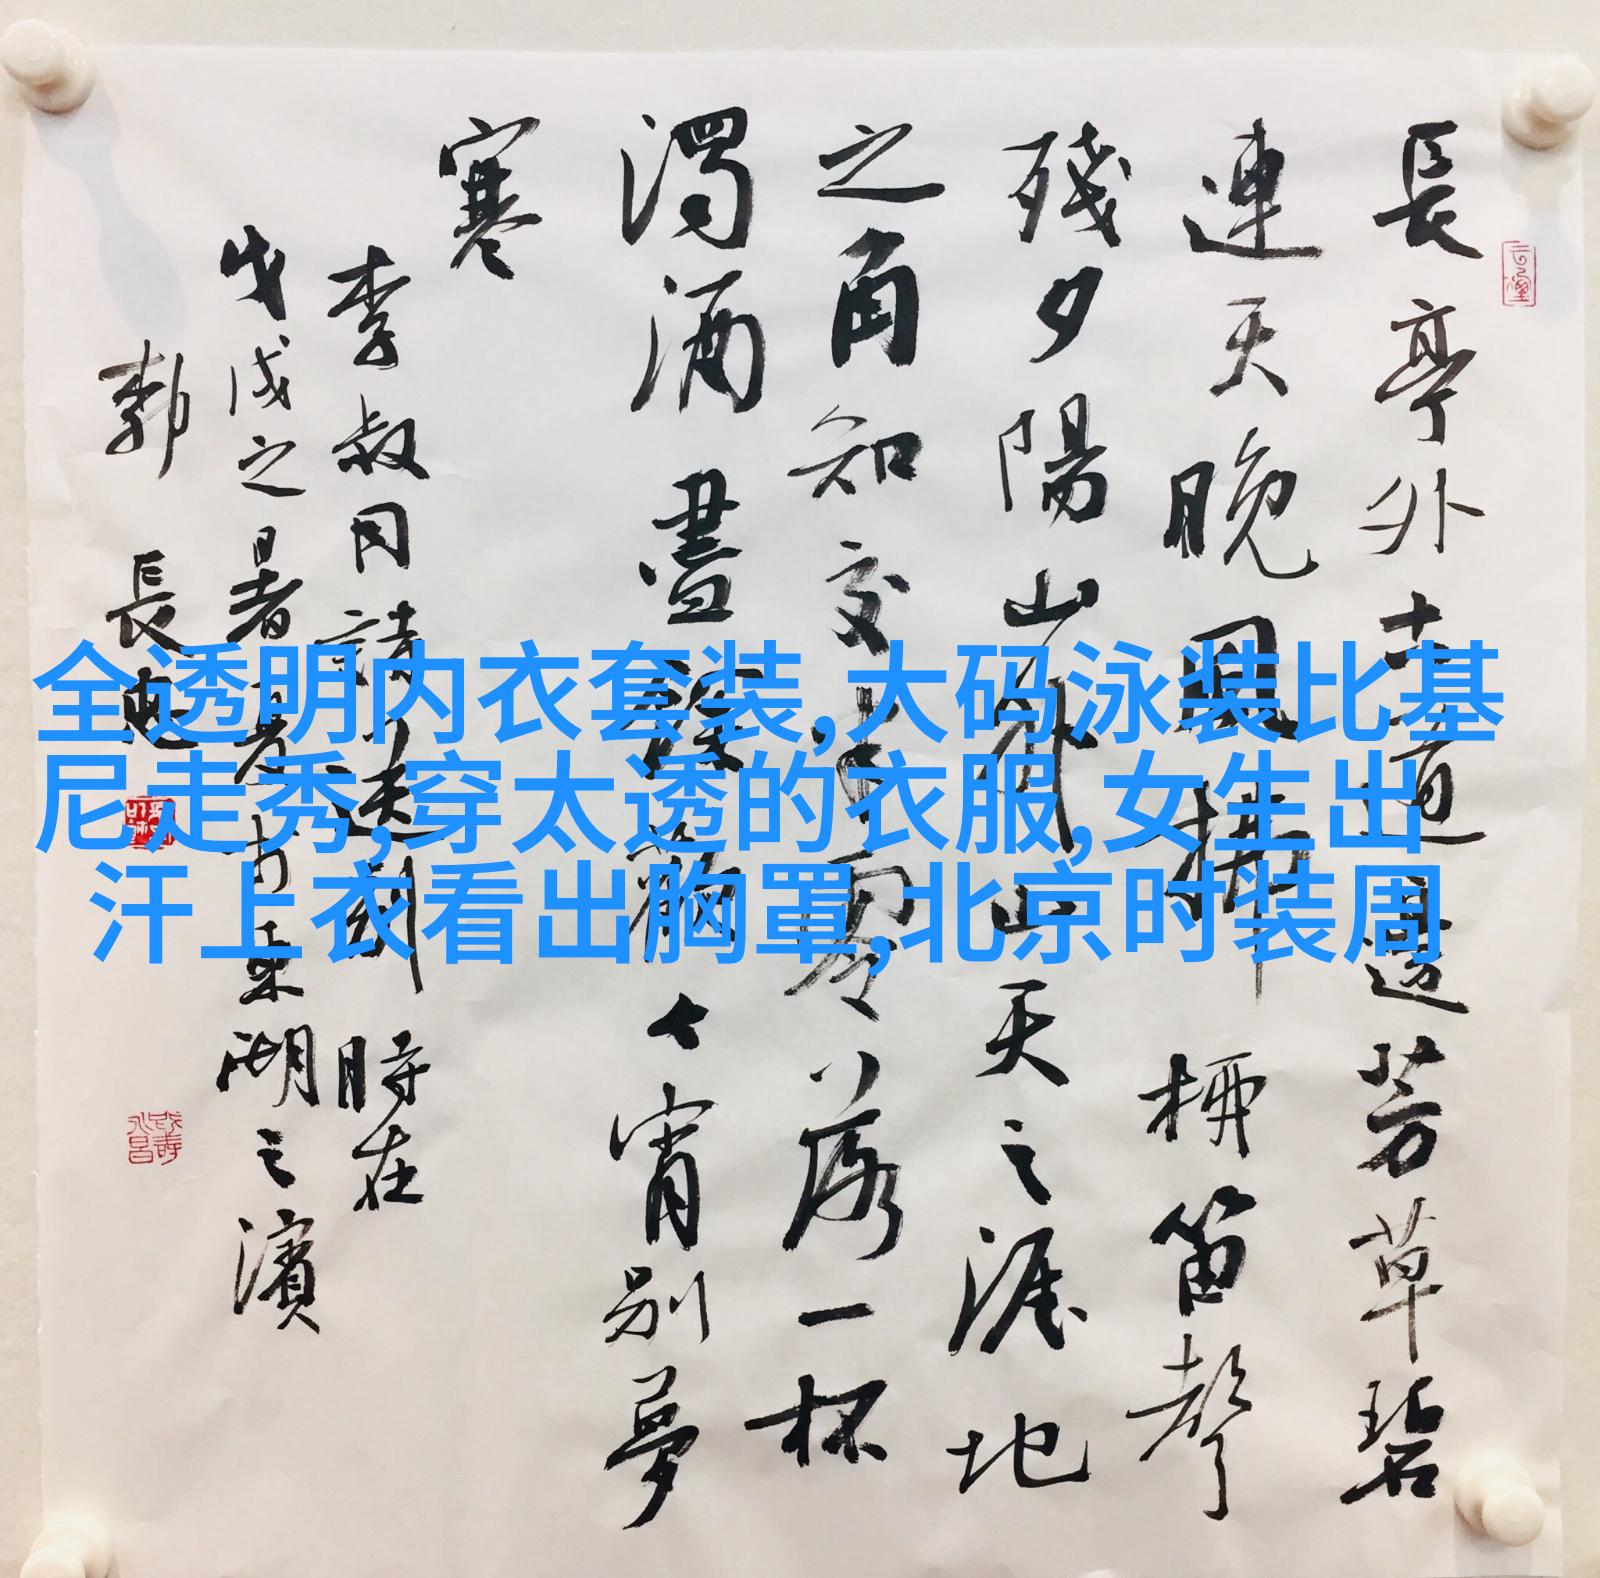 長亭外古道邊芳草碧
連天晚風拂柳笛聲
殘夕陽山外山天之涯地
之角知交半零落一杯
濁酒盡餘歡今宵別夢
寒
李叔同詩送别 時在
戊戌之暑 東湖之濱
全透明内衣套装,大码泳装比基
尼走秀,穿太透的衣服,女生出
汗上衣看出胸罩,北京时装周